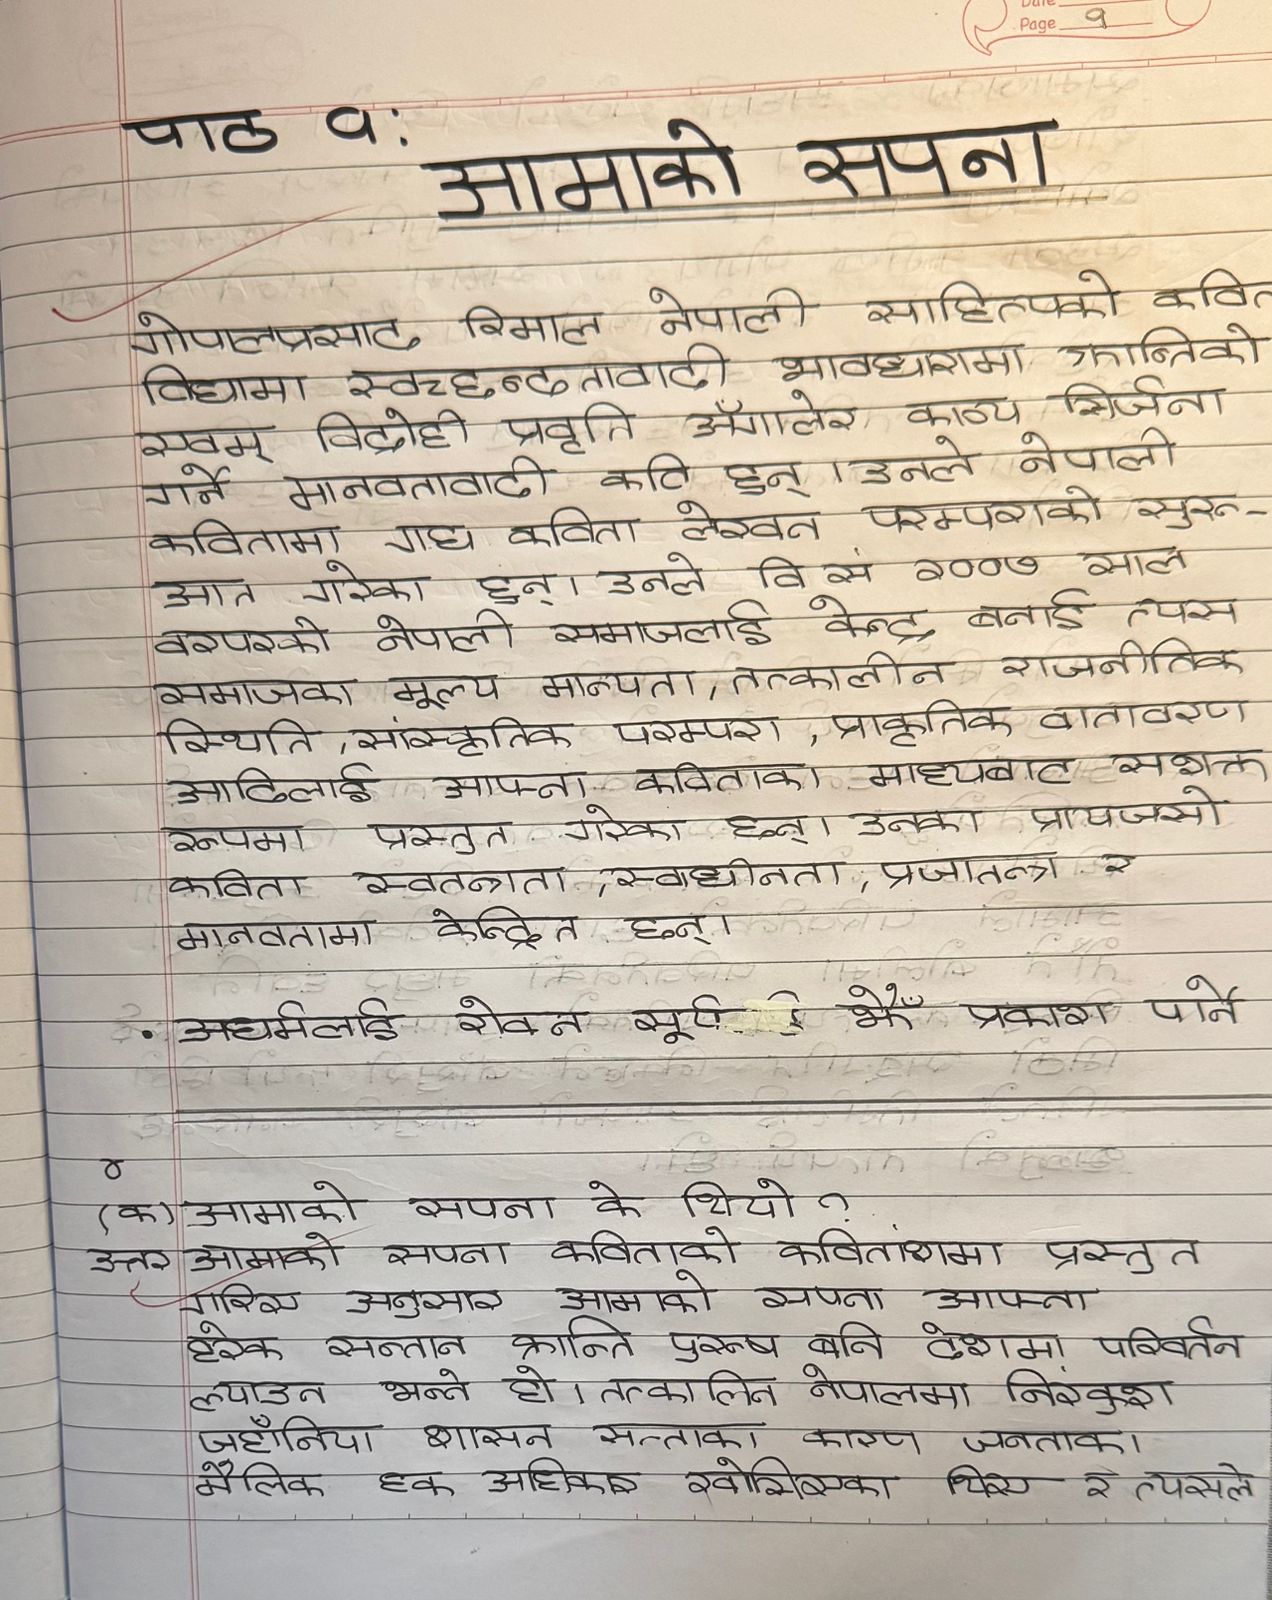 Date
Page १
पाठ १:
आमाको सपना
गोपालप्रसाद रिमाल नेपाली साहित्यको कवित
विधामा स्वच्छन्दतावादी भावधारामा क्रान्तिको
एवम् विद्रोही प्रवृति अँगालेर काव्य सिर्जना
गर्ने मानवतावादी कवि हुन् । उनले नेपाली
कवितामा गद्य कविता लेखन परम्पराको सुरु-
आत गरेका हुन् । उनले वि सं २००७ साल
वरपरको नेपाली समाजलाई केन्द्र बनाई त्यस
समाजका मूल्य मान्यता, तत्कालीन राजनीतिक
स्थिति, सांस्कृतिक परम्परा, प्राकृतिक वातावरण
आदिलाई आफ्ना कविताका माध्यबाट सशक्त
रूपमा प्रस्तुत गरेका छन् । उनका प्रायजसो
कविता स्वतन्त्रता, स्वाधीनता, प्रजातन्त्र र
मानवतामा केन्द्रित छन् ।
• अधर्मलाई रोक्न सूर्य झैँ प्रकाश पार्ने
४
(क) आमाको सपना के थियो ?
उत्तर आमाको सपना कविताको कवितांशमा प्रस्तुत
गरिए अनुसार आमाको सपना आफ्ना
हरेक सन्तान क्रान्ति पुरुष बनि देशमा परिवर्तन
ल्याउन भन्ने हो । तत्कालिन नेपालमा निरंकुश
जहाँनिया शासन सत्ताका कारण जनताका
मौलिक हक अधिकार खोसिएका थिए र त्यसले